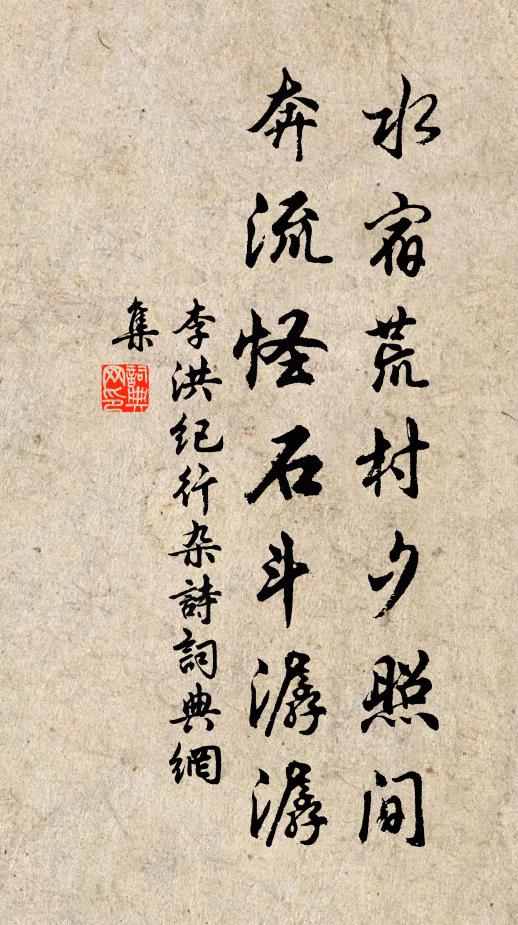 水宿荒村夕照间
奔流怪石斗潺潺
李洪纪行杂詩詞典網
集
詞典
网印